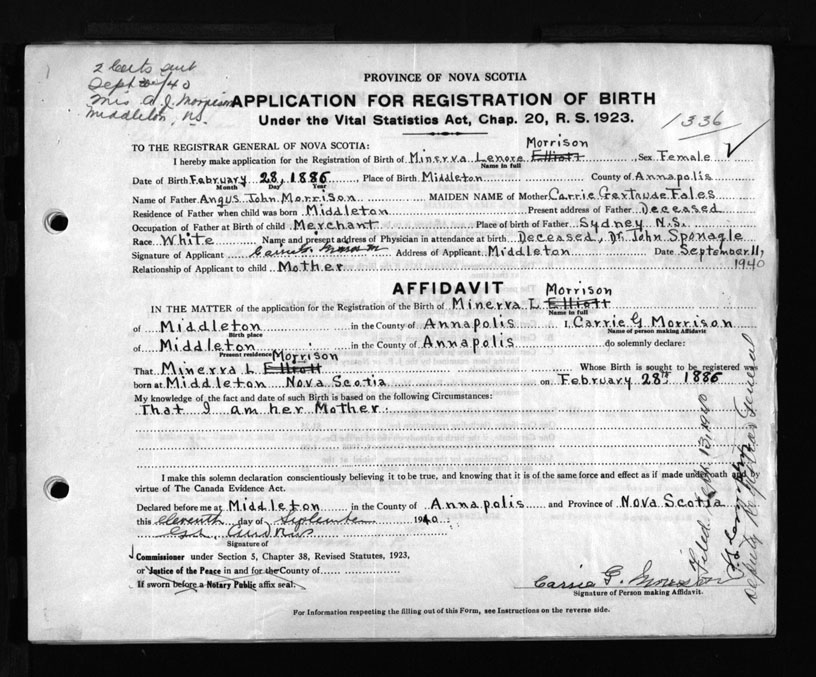 2 Certs sent
Sept /40
Mrs A. J. Morrison
Middleton, N.S.
PROVINCE OF NOVA SCOTIA
APPLICATION FOR REGISTRATION OF BIRTH
Under the Vital Statistics Act, Chap. 20, R. S. 1923.
1336
TO THE REGISTRAR GENERAL OF NOVA SCOTIA:
Morrison
I hereby make application for the Registration of Birth of Minerva Lenore Elliott Sex Female
Name in full
Date of Birth February 28, 1886 Place of Birth Middleton County of Annapolis
Month Day Year
Name of Father Angus John Morrison MAIDEN NAME of Mother Carrie Gertrude Fales
Residence of Father when child was born Middleton Present address of Father Deceased
Occupation of Father at Birth of child Merchant Place of birth of Father Sydney N.S.
Race White Name and present address of Physician in attendance at birth Deceased, Dr. John Sponagle
Signature of Applicant Carrie G. Morrison Address of Applicant Middleton Date September 11, 1940
Relationship of Applicant to child Mother
AFFIDAVIT
Morrison
IN THE MATTER of the application for the Registration of the Birth of Minerva L Elliott
Name in full
of Middleton in the County of Annapolis I, Carrie G Morrison
Birth place Name of person making Affidavit
of Middleton in the County of Annapolis do solemnly declare:
Present residence
Morrison
That Minerva L Elliott Whose Birth is sought to be registered was
born at Middleton Nova Scotia on February 28th 1886
My knowledge of the fact and date of such Birth is based on the following Circumstances:
That I am her Mother.
I make this solemn declaration conscientiously believing it to be true, and knowing that it is of the same force and effect as if made under oath and by
virtue of The Canada Evidence Act.
Declared before me at Middleton in the County of Annapolis and Province of Nova Scotia
this eleventh day of September 1940
Signature of
Commissioner under Section 5, Chapter 38, Revised Statutes, 1923,
or Justice of the Peace in and for the County of
If sworn before a Notary Public affix seal.
Carrie G. Morrison
Signature of Person making Affidavit.
For Information respecting the filling out of this Form, see Instructions on the reverse side.
Filed. 13, 1940
Deputy Registrar General